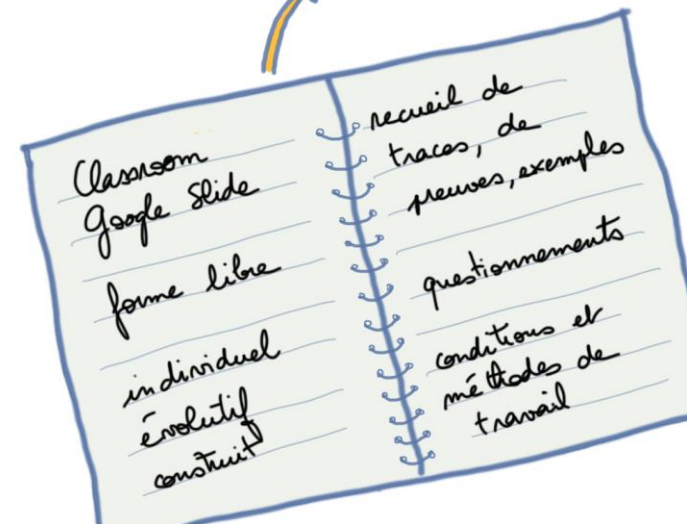 Classroom
Google Slide
forme libre
individuel
évolutif
construit
recueil de
traces, de
preuves, exemples
questionnements
conditions et
méthodes de
travail